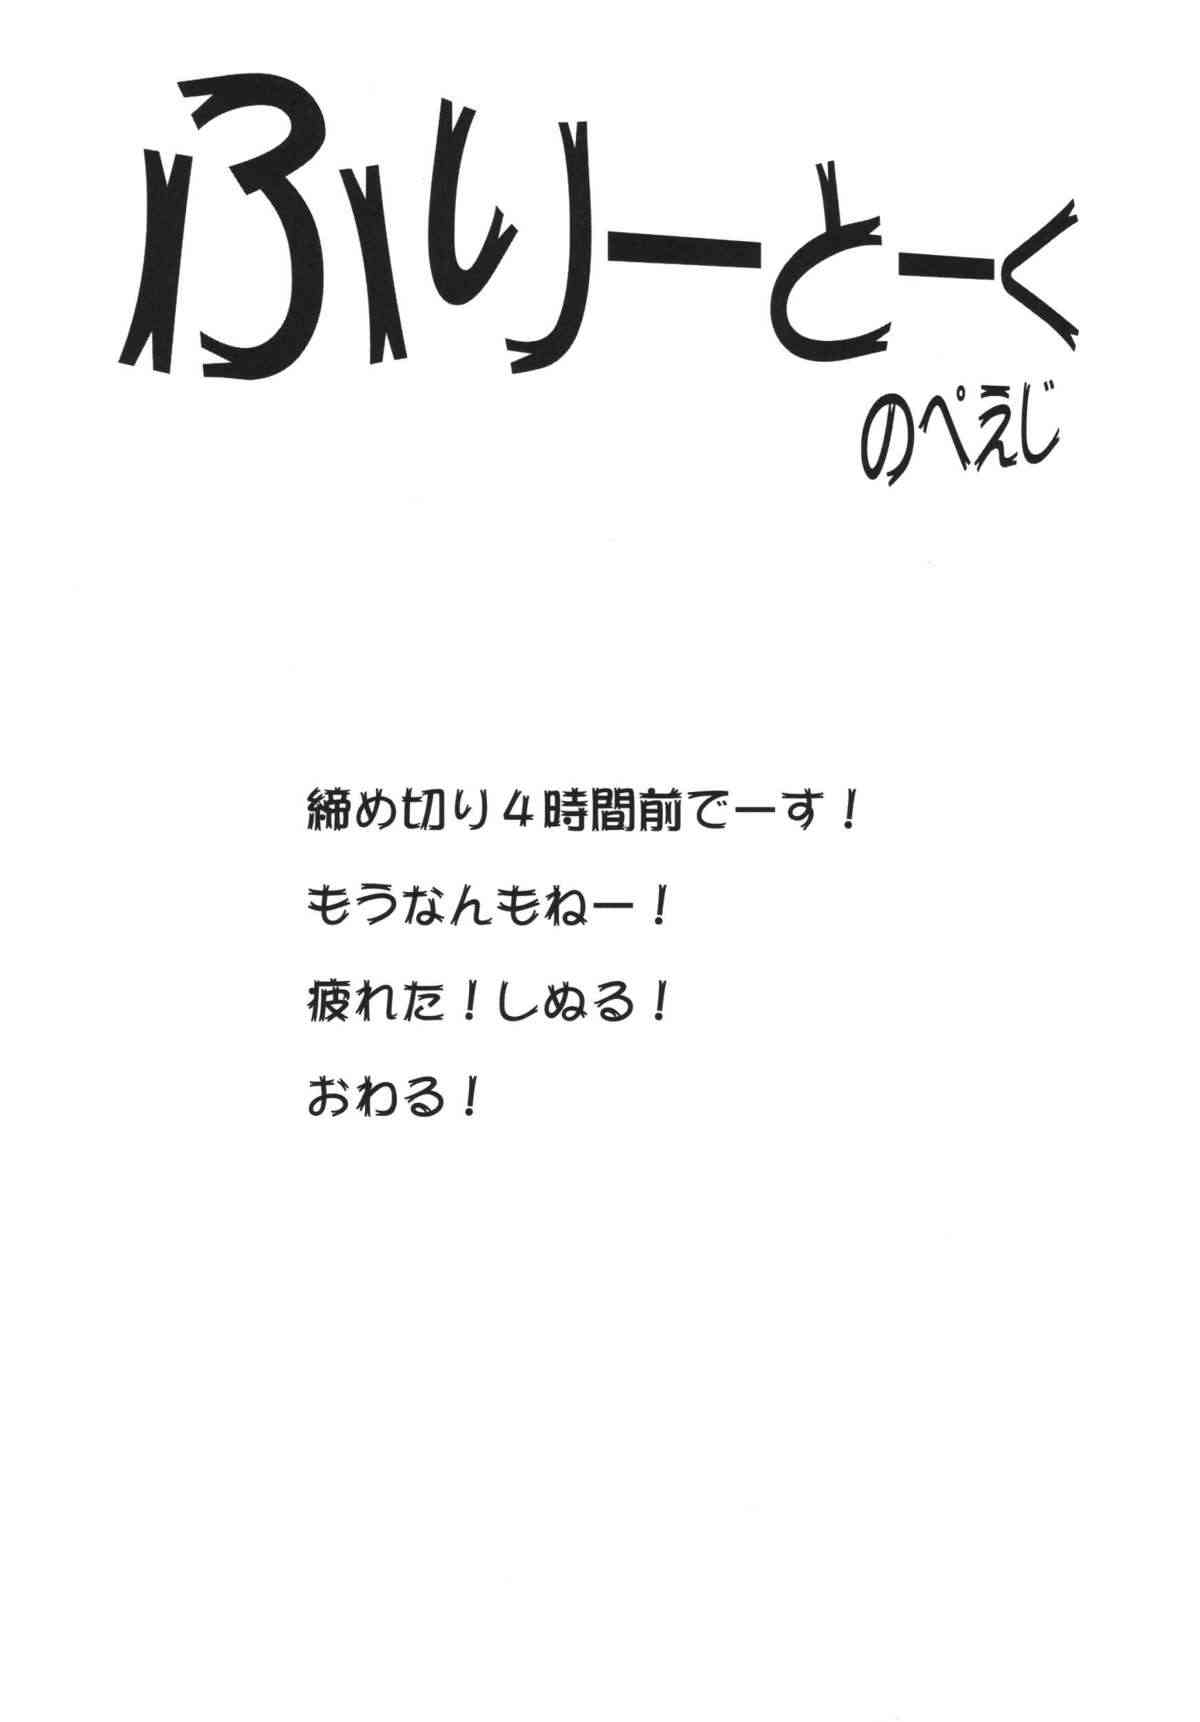 ふりーとーく
のぺえじ
締め切り４時間前でーす！
もうなんもねー！
疲れた！しぬる！
おわる！